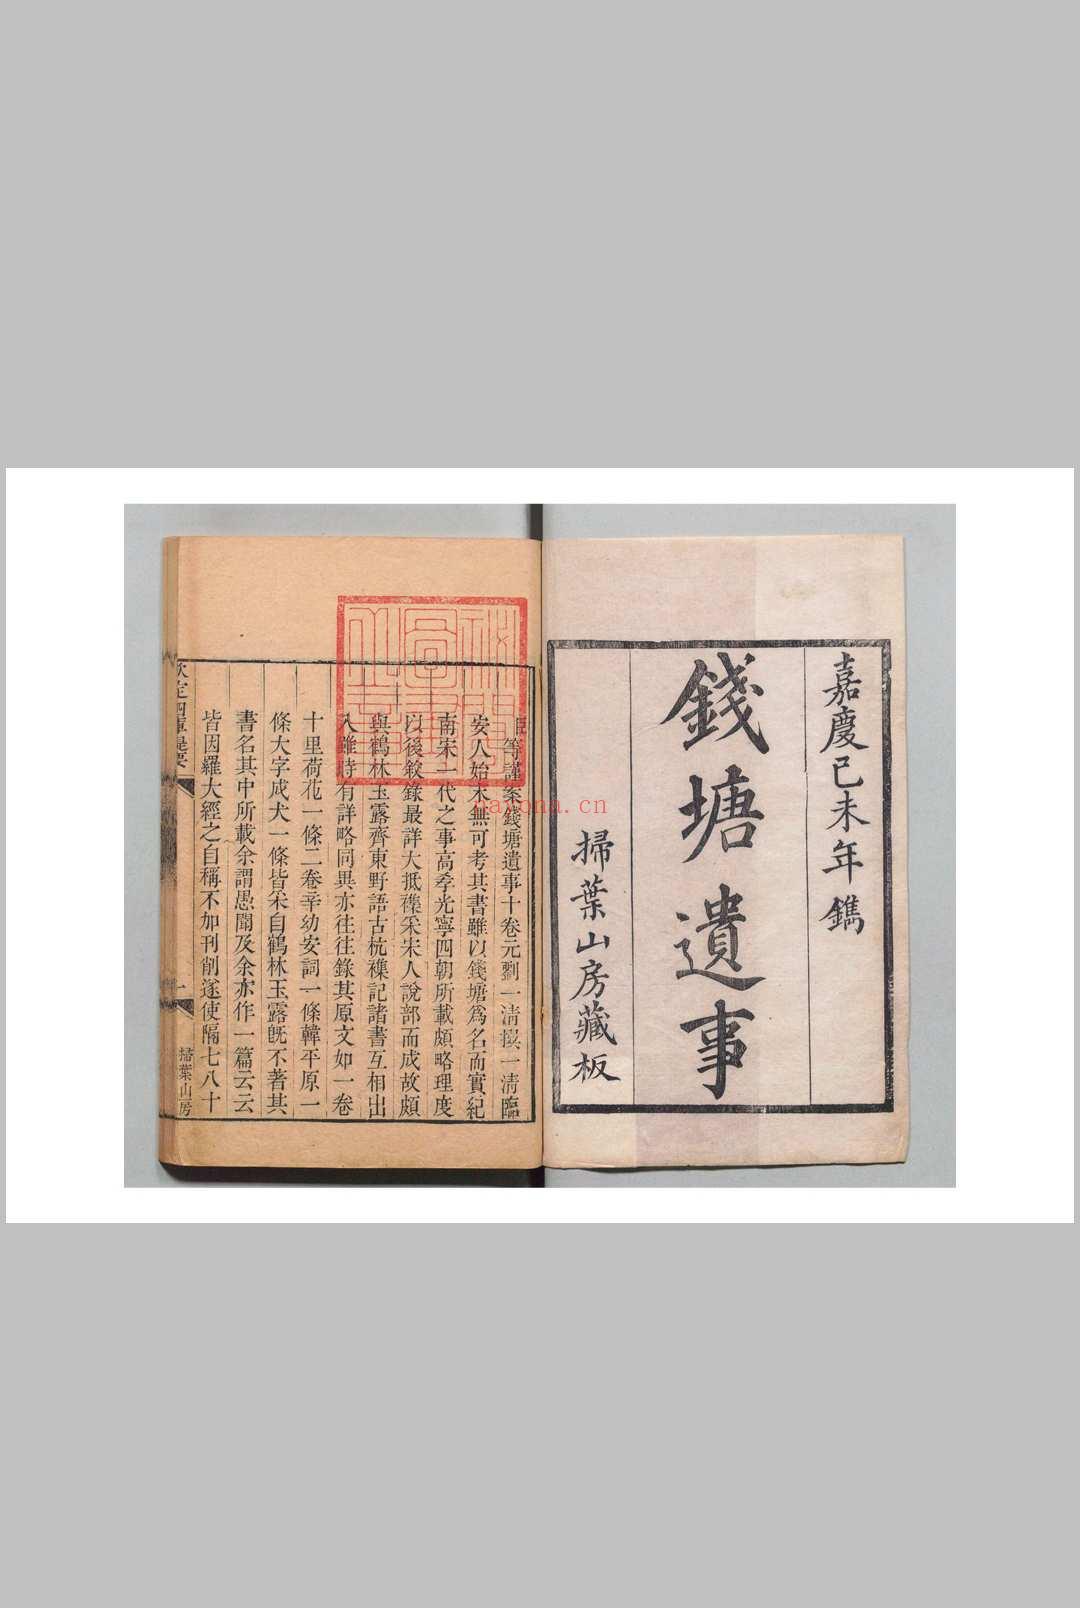 嘉慶己未年鐫
錢塘遺事
掃葉山房藏板
臣等謹案錢塘遺事十卷元劉一清撰一清臨
安人始末無可考其書雖以錢塘爲名而實紀
南宋一代之事高孝光寧四朝所載頗略理度
以後敘錄最詳大抵襍采宋人說部而成故頗
與鶴林玉露齊東野語古杭襍記諸書互相出
入雖時有詳略同異亦往往錄其原文如一卷
十里荷花一條二卷辛幼安詞一條韓平原一
條大字成犬一條皆采自鶴林玉露旣不著其
書名其中所載余謂愚聞及余亦作一篇云云
皆因羅大經之自稱不加刊削遂使隔七八十
欽定四庫提要
一
掃葉山房
nayona.cn